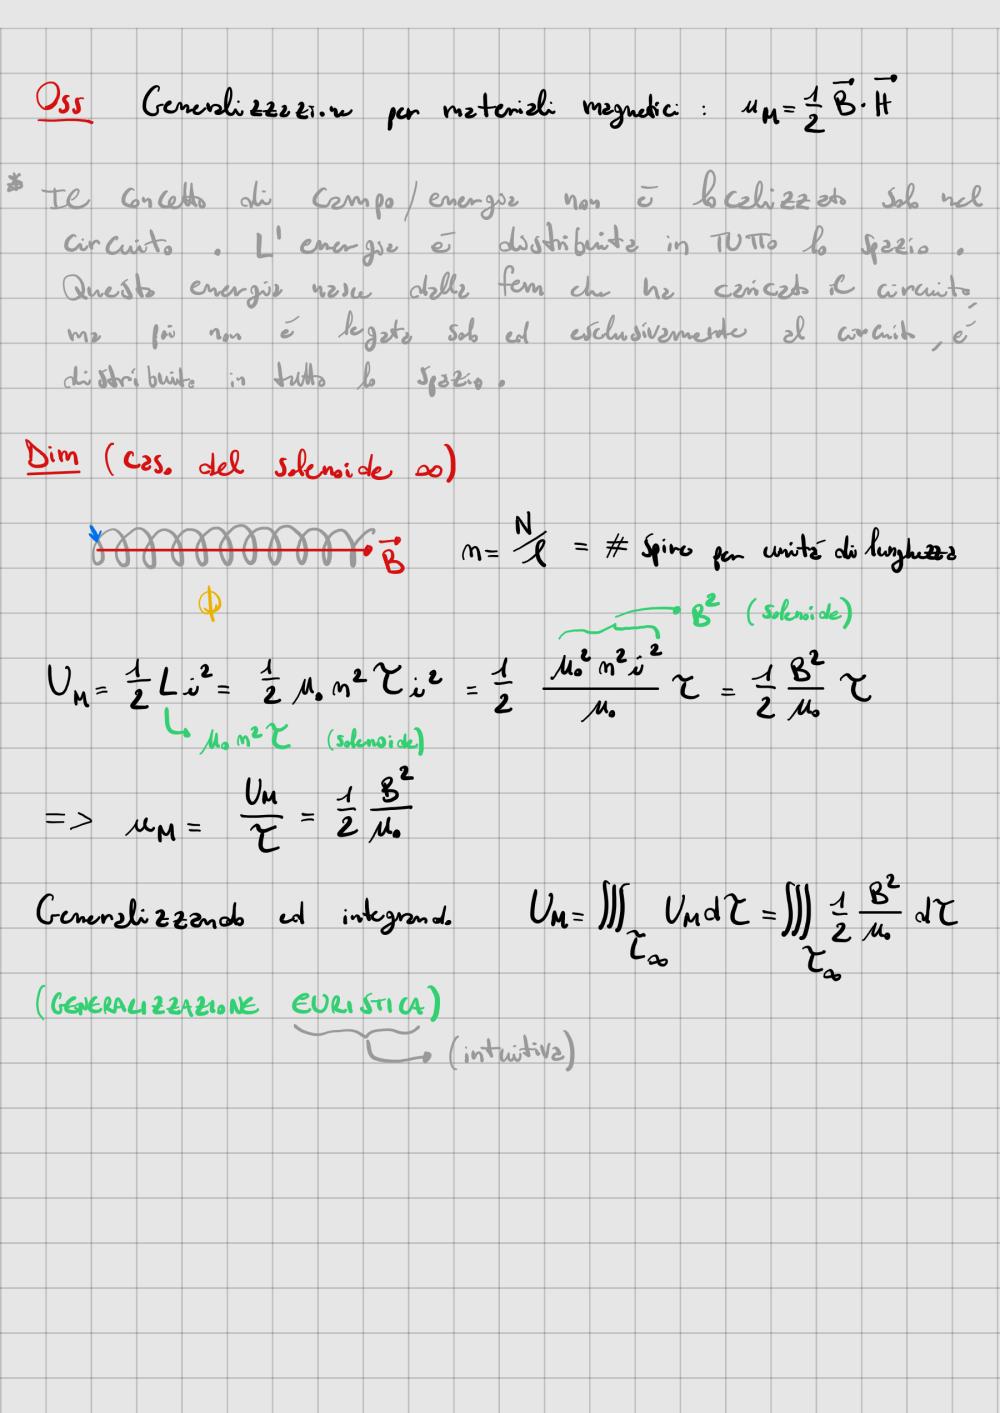 Oss Generalizzazione per materiali magnetici : u_M = 1/2 B⃗ · H⃗
* Il concetto di campo/energia non è localizzato solo nel
circuito . L' energia è distribuita in TUTTO lo spazio .
Questa energia nasce dalla fem che ha caricato il circuito,
ma poi non è legata solo ed esclusivamente al circuito, è
distribuita in tutto lo spazio .
Dim (caso del solenoide ∞)
B⃗ n = N/ℓ = # spire per unità di lunghezza
Φ
B² (solenoide)
U_M = 1/2 L i² = 1/2 μ₀ n² τ i² = 1/2 (μ₀² n² i²)/μ₀ τ = 1/2 B²/μ₀ τ
μ₀ n² τ (solenoide)
=> u_M = U_M/τ = 1/2 B²/μ₀
Generalizzando ed integrando U_M = ∭_τ∞ U_M dτ = ∭_τ∞ 1/2 B²/μ₀ dτ
(GENERALIZZAZIONE EURISTICA)
(intuitiva)